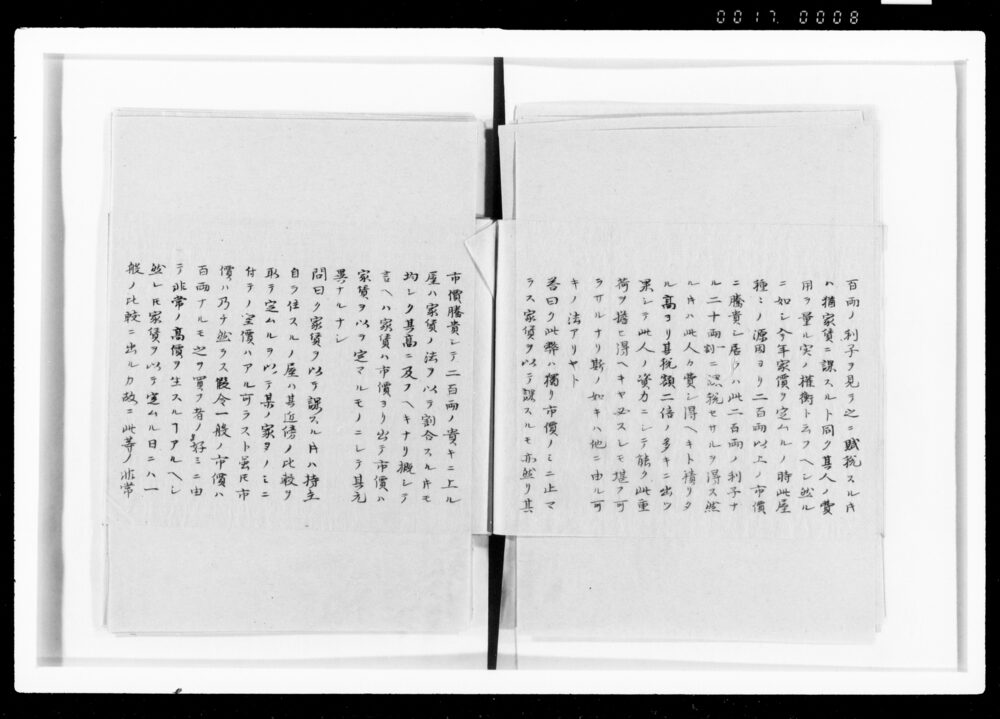 0017 0008
百両ノ利子ヲ見テ之ニ賦税スル片
ハ猶家賃ニ課スルト同ク其人ノ費
用ヲ量ル実ノ權衡ト云フヘシ然ル
ニ如シ今年家價ヲ定ムルノ時此屋
種ミノ源因ヨリ二百両以上ノ市價
ニ騰貴シ居ラハ此二百両ノ利子ナ
ル二十両一割ニ課税セサルヲ得ス然
ル片ハ此人ク費シ得ヘキト積リタ
ル高ヨリ其税額二倍ノ多キニ出ツ
果シテ此人ノ資力ニシテ能ク此重
荷ヲ擔ヒ得ヘキヤ必スレモ堪フ可
ラサルナリ斯ノ如キハ他ニ由ル可
キノ法アリヤト
答曰ク此弊ハ獨リ市價ノミニ止マ
ラス家賃ヲ以テ課スルモ亦然リ其
市價騰貴シテ二百両ノ貴キニ上ル
屋ハ家賃ノ法ヲ以テ割合スル片モ
均シク其高ニ及フヘキナリ概シテ
言ヘハ家賃ハ市價ヨリ出テ市價ハ
家賃ヲ以テ定マルモノニシテ其元
異ナルナシ
問曰ク家賃ヲ以テ課スル片ハ持主
自ラ住スルノ屋ハ其近傍ノ比較ヲ
取テ定ムルヲ以テ某ノ家ヲノミニ
付テノ定價ハアル可ラスト虽モ市
價ハ乃チ然ラス假令一般ノ市價ハ
百両ナルモ之ヲ買フ者ノ好ミニ由
テ非常ノ高價ヲ生スルヿアルヘシ
然レ圧家賃ヲ以テ定ムル日ニハ一
般ノ比較ニ出ルカ故ニ此等ノ非常